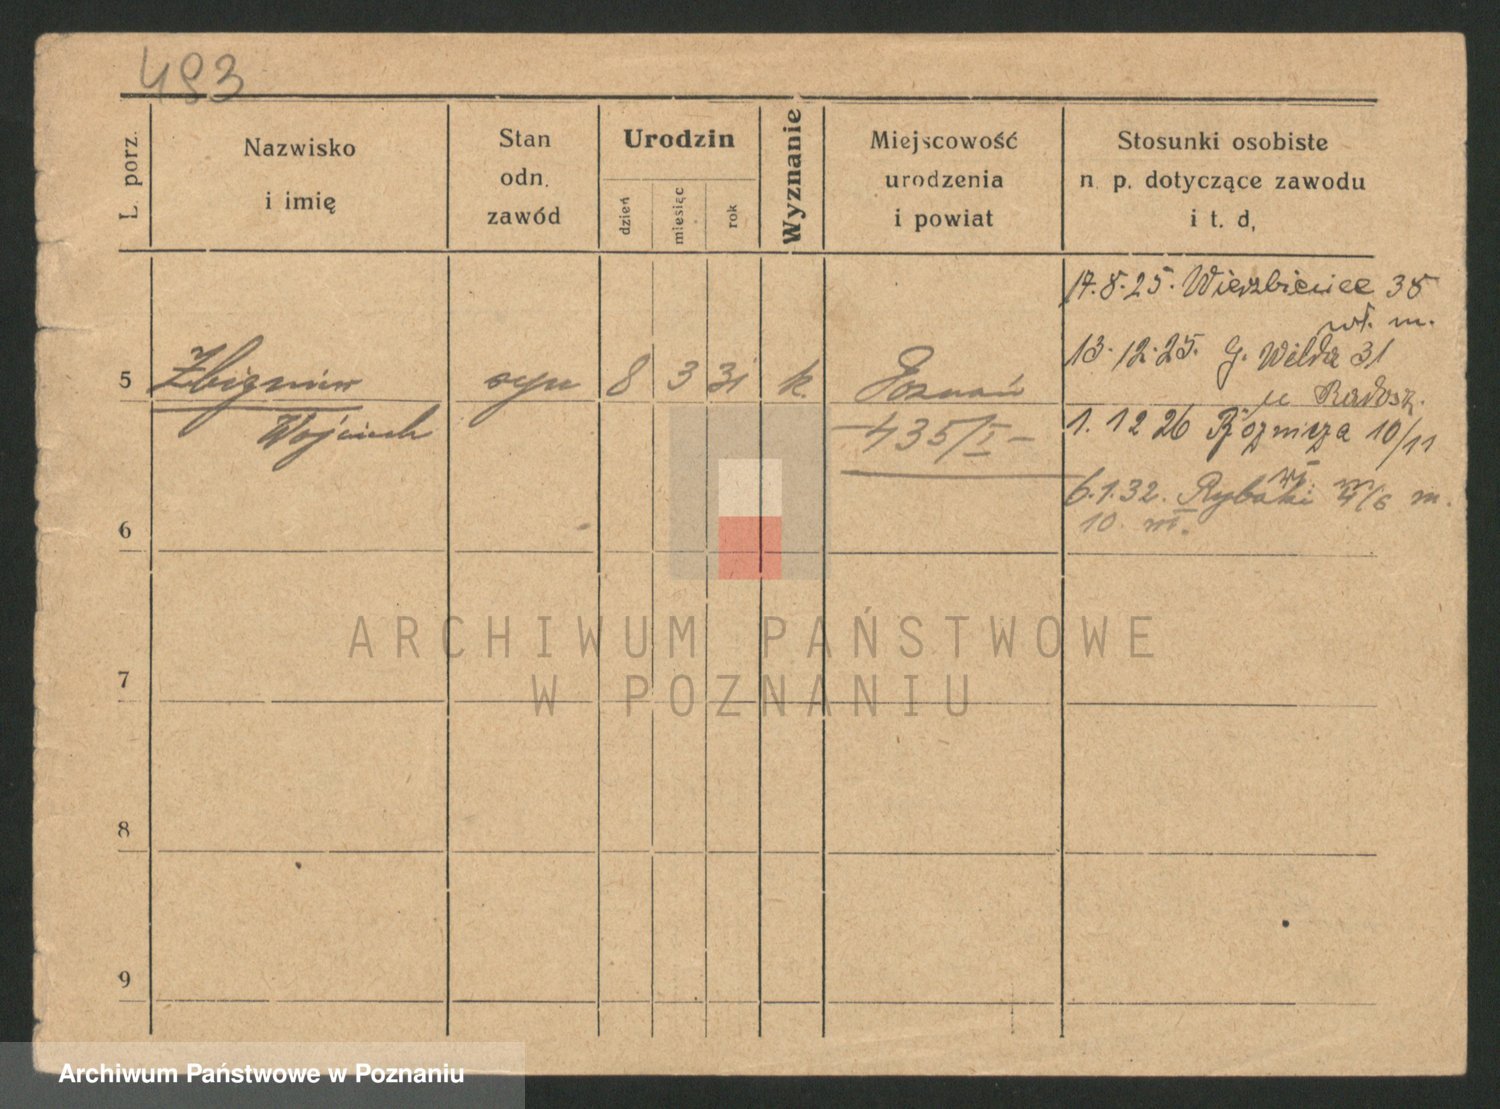 493
L. porz.
Nazwisko
i imię
Stan
odn.
zawód
Urodzin
dzień
miesiąc
rok
Wyznanie
Miejscowość
urodzenia
i powiat
Stosunki osobiste
n. p. dotyczące zawodu
i t. d,
17.8.25. Wierzbięcice 38
wł. m.
13.12.25. G. Wilda 31
u Radosz.
5 Zbigniew syn 8 3 31 k. Poznań
Wojciech
—435/I—
1.12 26 Różnicza 10/11
wł. m
6.1.32. Rybaki 4/6 m.
10. wł.
6
7
8
9
ARCHIWUM PAŃSTWOWE
W POZNANIU
Archiwum Państwowe w Poznaniu